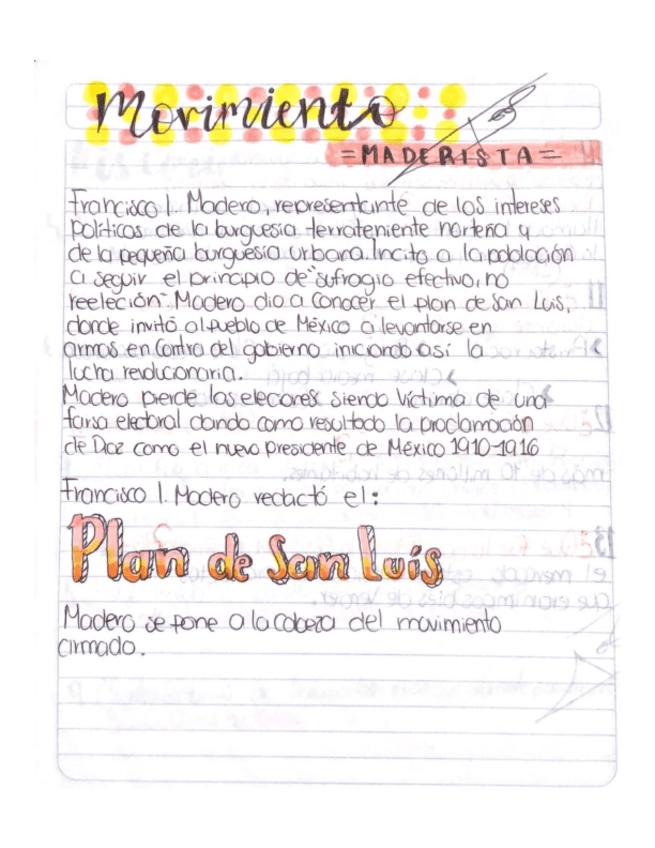 Movimiento
=MADERISTA=
Francisco I. Madero, representante de los intereses
políticos de la burguesía terrateniente norteña y
de la pequeña burguesía urbana. Incito a la población
a seguir el principio de "sufragio efectivo, no
reeleción". Madero dio a conocer el plan de San Luis,
donde invitó al pueblo de México a levantarse en
armas en contra del gobierno iniciando así la
lucha revolucionaria.
Madero pierde las eleciones siendo víctima de una
farsa electoral dando como resultado la proclamación
de Díaz como el nuevo presidente de México 1910-1916
Francisco I. Madero redactó el:
Plan de San Luís
Madero se pone a la cabeza del movimiento
armado.